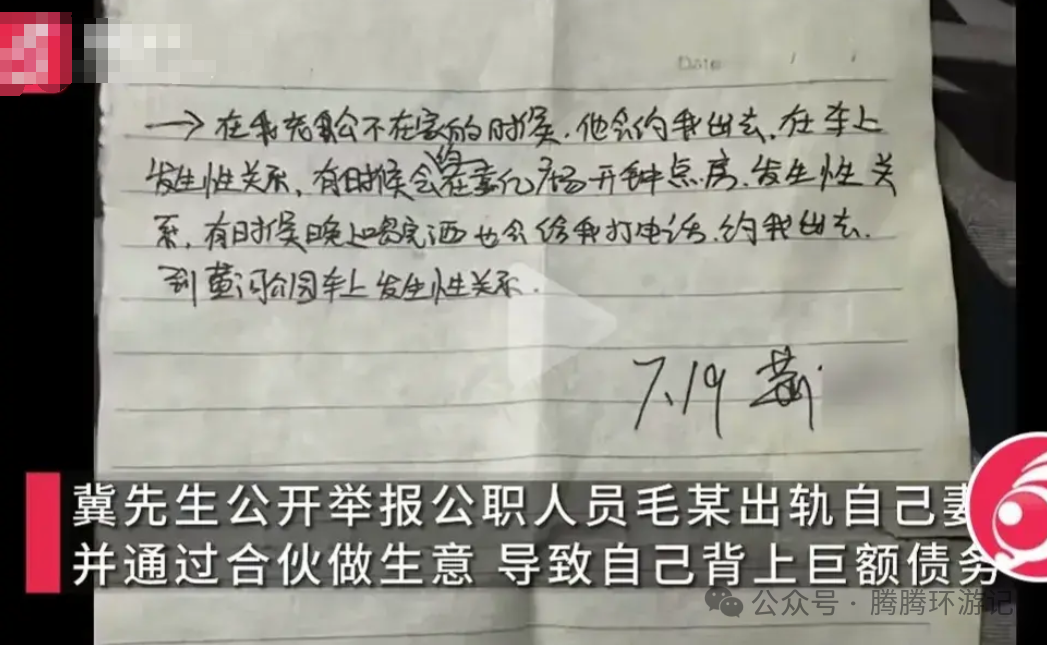 Date / /
→在我老公不在家的时候,他会约我出去,在车上
约
发生性关系,有时候会在亿广场开钟点房,发生性关
系,有时候晚上喝完酒也会给我打电话,约我出去.
到黄河公园车上发生性关系.
7.19
冀先生公开举报公职人员毛某出轨自己妻
并通过合伙做生意 导致自己背上巨额债务
公众号·腾腾环游记